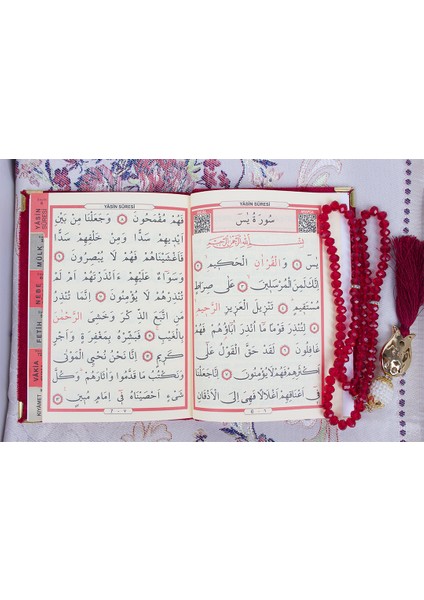 YÂSÎN SÛRESİ
سُورَةُ يٰسٓ
بِسْمِ اللّٰهِ الرَّحْمٰنِ الرَّحِيمِ
يٰسٓ ١ وَالْقُرْاٰنِ الْحَكِيمِ ٢
اِنَّكَ لَمِنَ الْمُرْسَلِينَ ٣ عَلٰى صِرَاطٍ
مُسْتَقِيمٍ ٤ تَنْزِيلَ الْعَزِيزِ الرَّحِيمِ
٥ لِتُنْذِرَ قَوْمًا مَا اُنْذِرَ اٰبَاؤُهُمْ فَهُمْ
غَافِلُونَ ٦ لَقَدْ حَقَّ الْقَوْلُ عَلٰى
اَكْثَرِهِمْ فَهُمْ لَا يُؤْمِنُونَ ٧ اِنَّا جَعَلْنَا
فِى اَعْنَاقِهِمْ اَغْلَالًا فَهِىَ اِلَى الْاَذْقَانِ
6 - ٦
YÂSÎN SÛRESİ
فَهُمْ مُقْمَحُونَ ٨ وَجَعَلْنَا مِنْ بَيْنِ
اَيْدِيهِمْ سَدًّا وَمِنْ خَلْفِهِمْ سَدًّا
فَاَغْشَيْنَاهُمْ فَهُمْ لَا يُبْصِرُونَ ٩
وَسَوَاءٌ عَلَيْهِمْ ءَاَنْذَرْتَهُمْ اَمْ لَمْ
تُنْذِرْهُمْ لَا يُؤْمِنُونَ ١٠ اِنَّمَا تُنْذِرُ
مَنِ اتَّبَعَ الذِّكْرَ وَخَشِىَ الرَّحْمٰنَ
بِالْغَيْبِ ۚ فَبَشِّرْهُ بِمَغْفِرَةٍ وَاَجْرٍ
كَرِيمٍ ١١ اِنَّا نَحْنُ نُحْىِ الْمَوْتٰى
وَنَكْتُبُ مَا قَدَّمُوا وَاٰثَارَهُمْ ۜ وَكُلَّ
شَىْءٍ اَحْصَيْنَاهُ فِى اِمَامٍ مُبِينٍ ١٢
7 - ٧
YÂSİN SÛRESİ
MÜLK
NEBE
FETİH
VÂKIA
KIYAMET